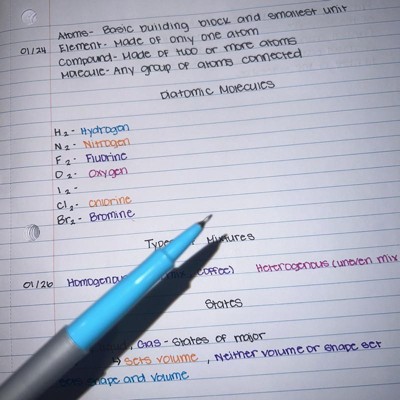 Atoms- Basic building block and smallest unit
01/24 Element- Made of only one atom
Compound- Made of two or more atoms
Molecule- Any group of atoms connected
Diatomic Molecules
H2- Hydrogen
N2- Nitrogen
F2- Fluorine
O2- Oxygen
I2-
Cl2- Chlorine
Br2- Bromine
Types Mixtures
01/26 Homogenous coffee) Heterogenous (uneven mix
States
Gas- States of major
↳ Sets volume, Neither volume or shape set
shape and volume